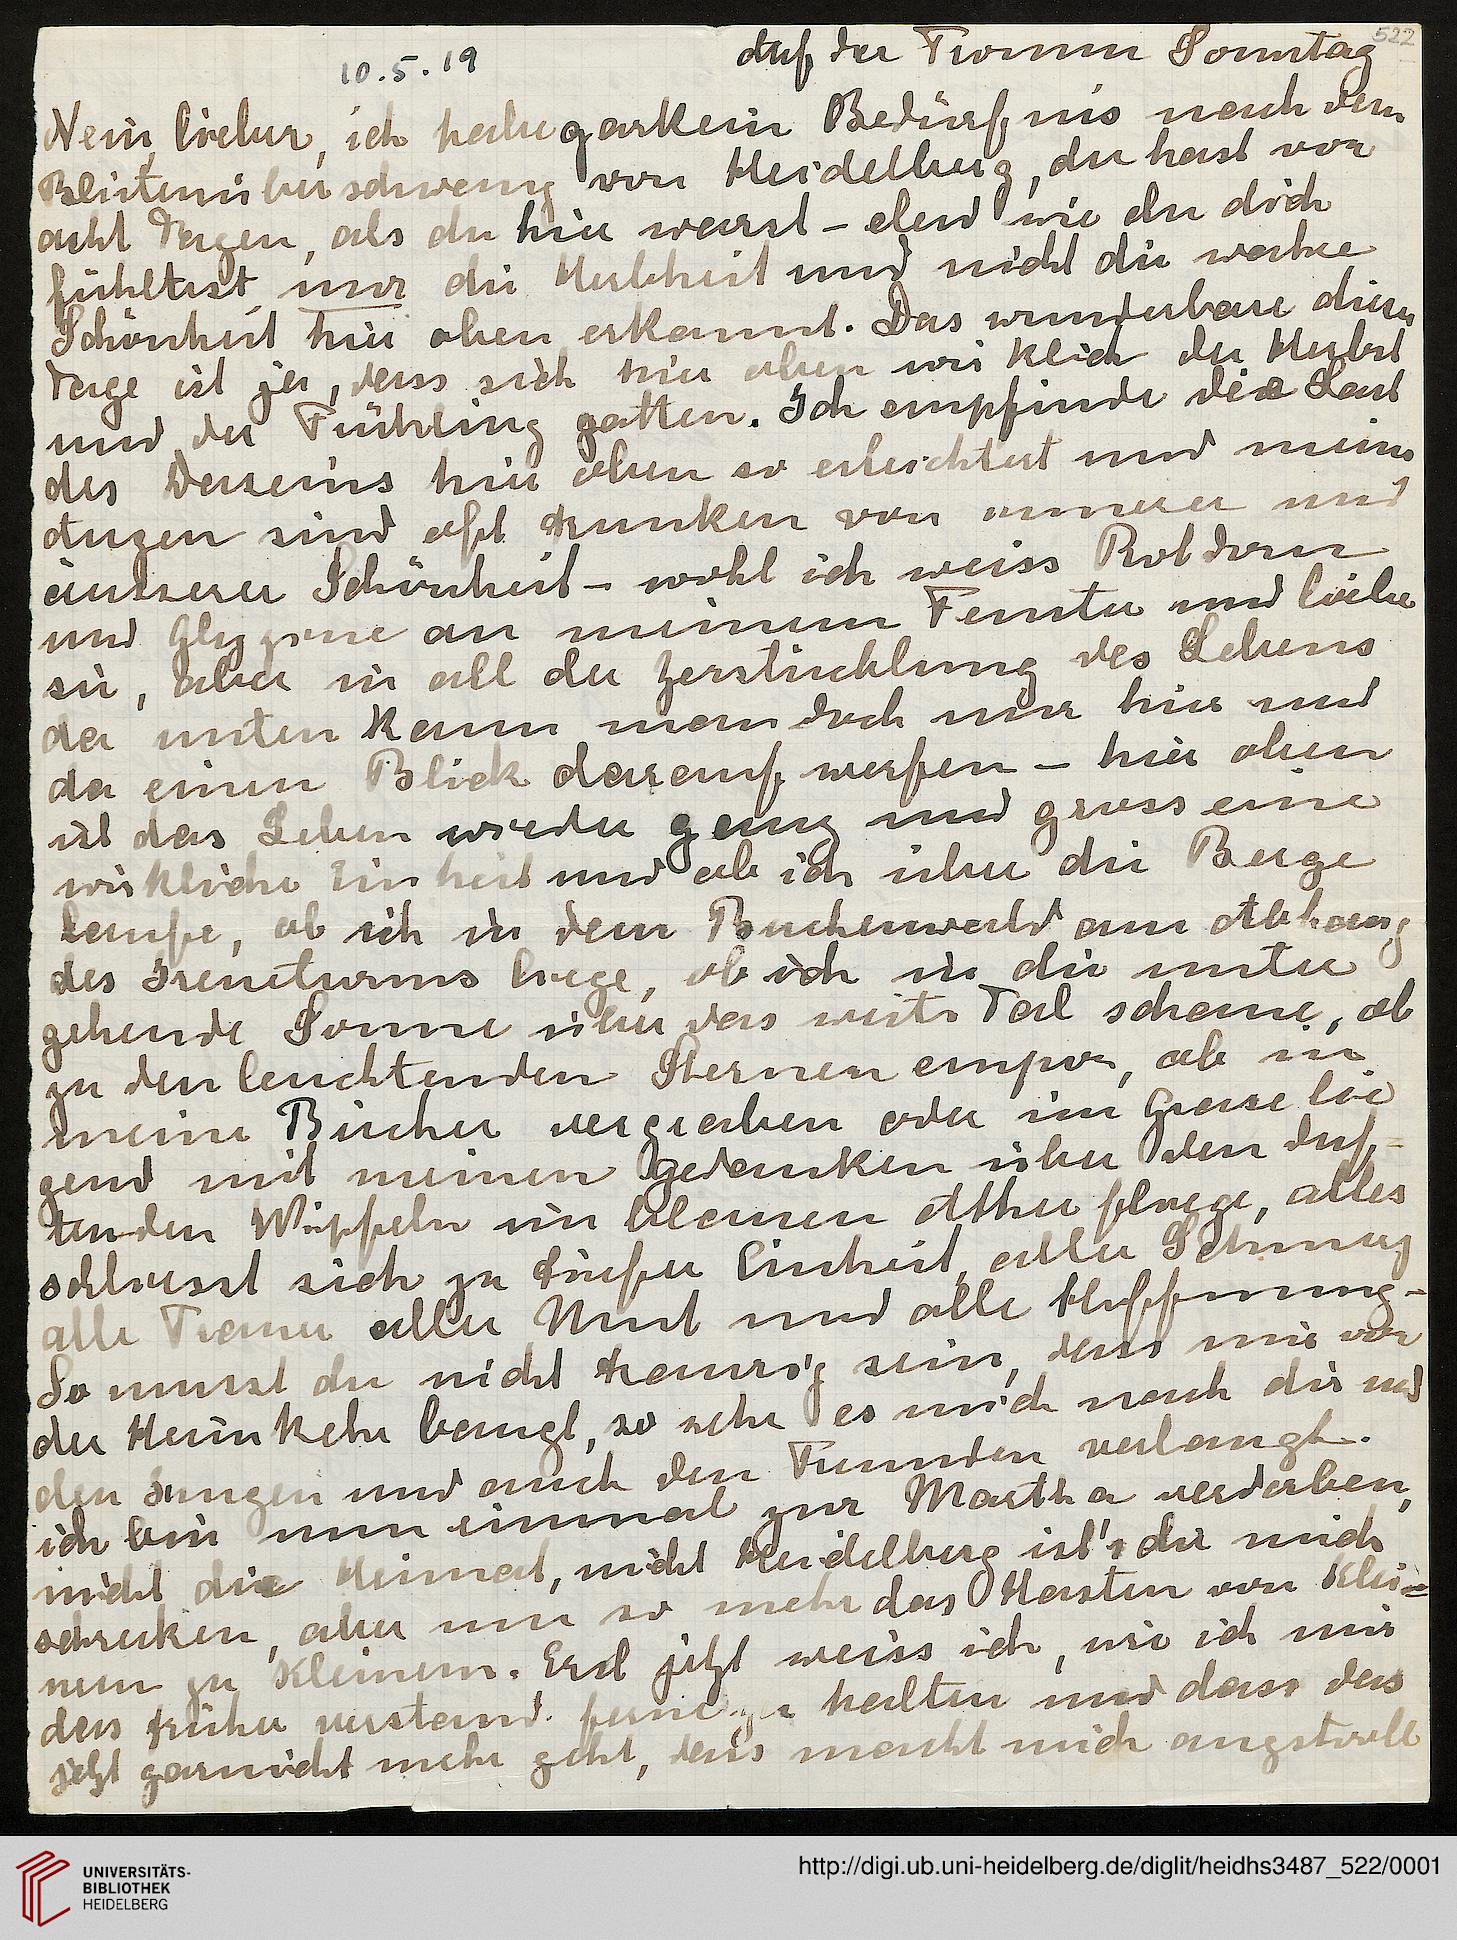 522
10.5.19
Auf der Tromm Sonntag
Nein, lieber, ich habe garkein Bedürfnis nach dem
Blütenüberschwang von Heidelberg, du hast vor
acht Tagen, als du hier warst – elend wie du dich
fühltest nur die Herbheit und nicht die wahre
Schönheit hier oben erkannt. Das wunderbare dieser
Tage ist ja, dass sich hier oben wirklich der Herbst
und der Frühling gatten. Ich empfinde die Last
des Daseins hier oben so erleichtert und meine
Augen sind oft trunken von innerer und
äusserer Schönheit – wohl ich weiss Rotdorn
und Glyzine an meinem Fenster und liebe
sie, aber in all der Zerstücklung des Lebens
da unten kann man doch nur hier und
da einen Blick darauf werfen – hier oben
ist das Leben wieder ganz und gross eine
wirkliche Einheit und ob ich über die Berge
laufe, ob ich in dem Buchenwald am Abhang
des Ireneturms liege, ob ich in die unter
gehende Sonne über das weite Tal schaue, ob
zu den leuchtenden Sternen empor, ob in
meine Bücher vergraben oder im Grase lie
gend mit meinen Gedanken über den duf-
tenden Wipfeln im blauen Äther fliege, alles
schliesst sich zu tiefer Einheit, aller Schmerz
alle Trauer aller Mut und alle Hoffnung –
So musst du nicht traurig sein, dass mir vor
der Heimkehr bangt, so sehr es mich nach dir und
den Jungen und auch den Freunden verlangt.
ich bin nun einmal zur Martha verdorben,
nicht die Heimat, nicht Heidelberg ist's die mich
schrecken, aber um so mehr das Hasten von Klei-
nem zu Kleinem. Erst jetzt weiss ich, wie ich mir
das früher verstand fernezu halten und dass das
jetzt garnicht mehr geht, das macht mich angstvoll
UNIVERSITÄTS-
BIBLIOTHEK
HEIDELBERG
http://digi.ub.uni-heidelberg.de/diglit/heidhs3487_522/0001